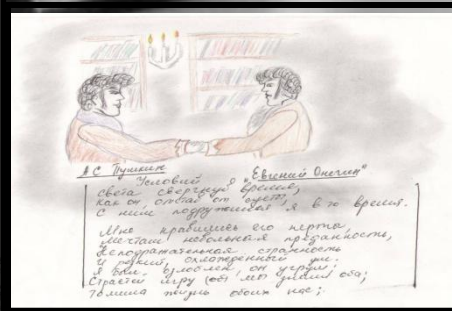 А С Пушкин "Евгений Онегин"
Условий
света свергнув бремя,
Как он, отстав от суеты,
С ним подружился я в то время.
Мне нравились его черты,
Мечтам невольная преданность,
Неподражательная странность
И резкий, охлажденный ум.
Я был озлоблен, он угрюм
Страстей игру мы знали оба;
Томила жизнь обоих нас;